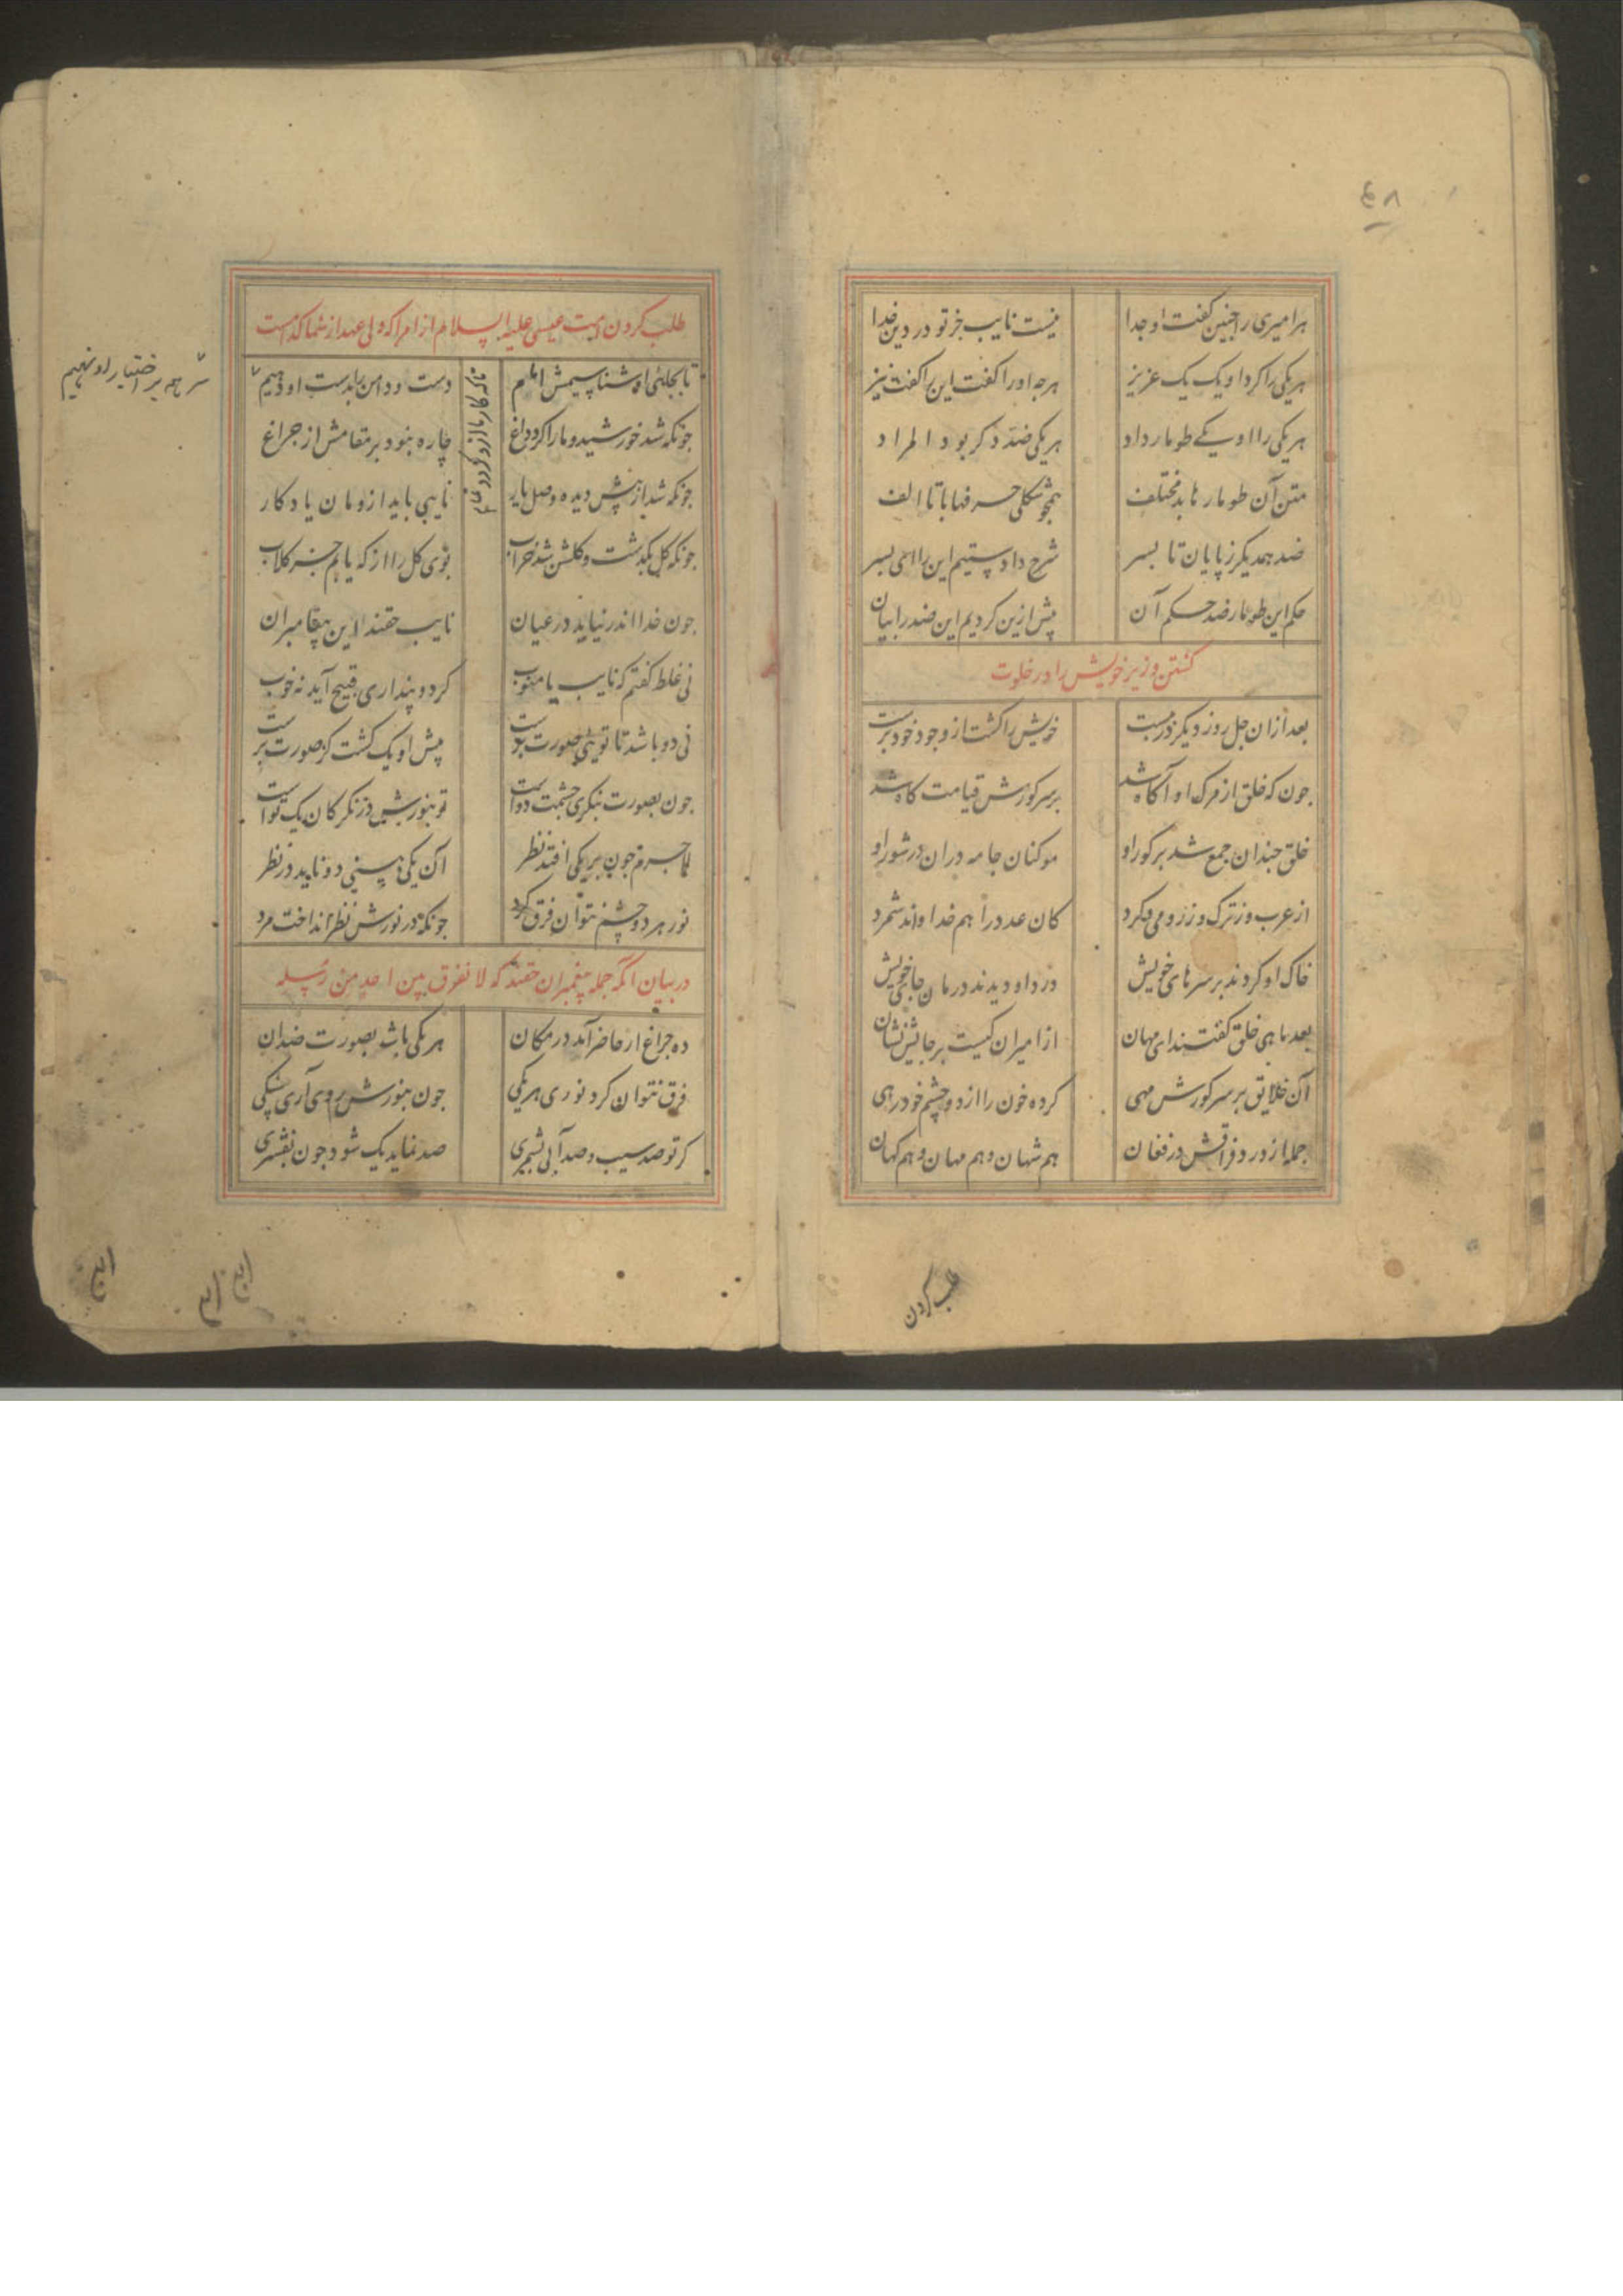 ۴۸
هر امیری را چنین کفت او جدا نیست نایب جز تو در دین خدا
هر یکی را کرد او یک یک عزیز هرچه او را کفت این را کفت نیز
هر یکی را او یکی طومار داد هر یکی ضد دکر بود المراد
متن آن طومارها بد مختلف همچو شکل حرفها با تا الف
ضد همدیکر ز پایان تا بسر شرح دادستیم این را ای بسر
حکم این طومار ضد حکم آن پیش ازین کردیم این ضد را بیان
کشتن وزیر خویش را در خلوت
بعد از آن جل روز دیکر در ببست خویش را کشت از وجود خود برست
جون که خلق از مرک او آکاه شد بر سر کورش قیامت کاه شد
خلق جندان جمع شد بر کور او موکنان جامه دران در شور او
از عرب وز ترک وز رومی و کرد کان عدد را هم خدا داند شمرد
خاک او کردند بر سرهای خویش درد او دیدند درمان جای خویش
بعد ماهی خلق کفتند ای مهان از امیران کیست بر جایش نشان
آن خلایق بر سر کورش مهی کرده خون را از دو چشم خود رهی
جمله از درد فراقش در فغان هم شهان و هم مهان و هم کهان
طلب کردن
طلب کردن امت عیسی علیه السلام از امرا که ولی عهد از شما کدامست
تا بجای او شناسیمش امام دست و دامن را بدست او دهیم
تا که کار ما ازو کردد تمام
سر همه بر اختیار او نهیم
جونکه شد خورشید و ما را کرد داغ چاره نبود بر مقامش از جراغ
جونکه شد از پیش دیده وصل یار نایبی باید ازومان یادکار
جونکه کل بکذشت و کلشن شد خراب بوی کل را از که یابم جز کلاب
جون خدا اندر نیاید در عیان نایب حقند این پیغامبران
نی غلط کفتم که نایب یا منوب کر دو پنداری قبیح آید نه خوب
نی دو باشد تا تویی صورت پرست پیش او یک کشت کز صورت برست
جون بصورت بنکری چشمت دو است تو بنورش در نکر کان یک تو است
لاجرم جون بر یکی افتد نظر آن یکی بینی دو ناید در نظر
نور هر دو چشم نتوان فرق کرد جونکه در نورش نظر انداخت مرد
در بیان انکه جمله پیغمبران حقند که لا نفرق بین احد من رسله
ده جراغ ار حاضر آمد در مکان هر یکی باشد بصورت ضد آن
فرق نتوان کرد نوری هر یکی جون بنورش روی آری بی شکی
کر تو صد سیب و صد آبی بشمری صد نماید یک شود جون بفشری